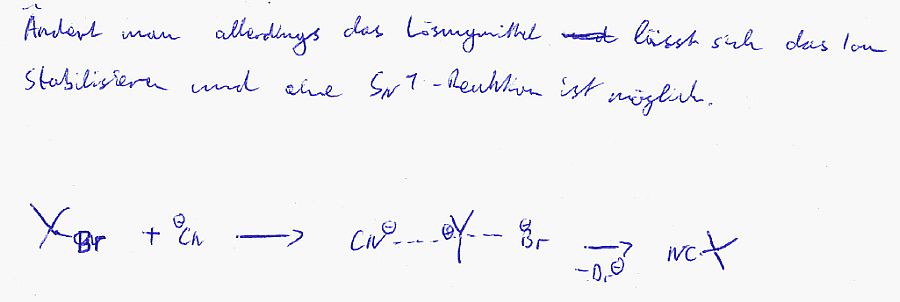 Ändert man allerdings das Lösungmittel lässt sich das Ion
Stabilisieren und eine SN1-Reaktion ist möglich.
Br + ⊖CN ⟶ CN⊖ ---- ⊕ --- ⊖Br ⟶ NC
-Br⊖